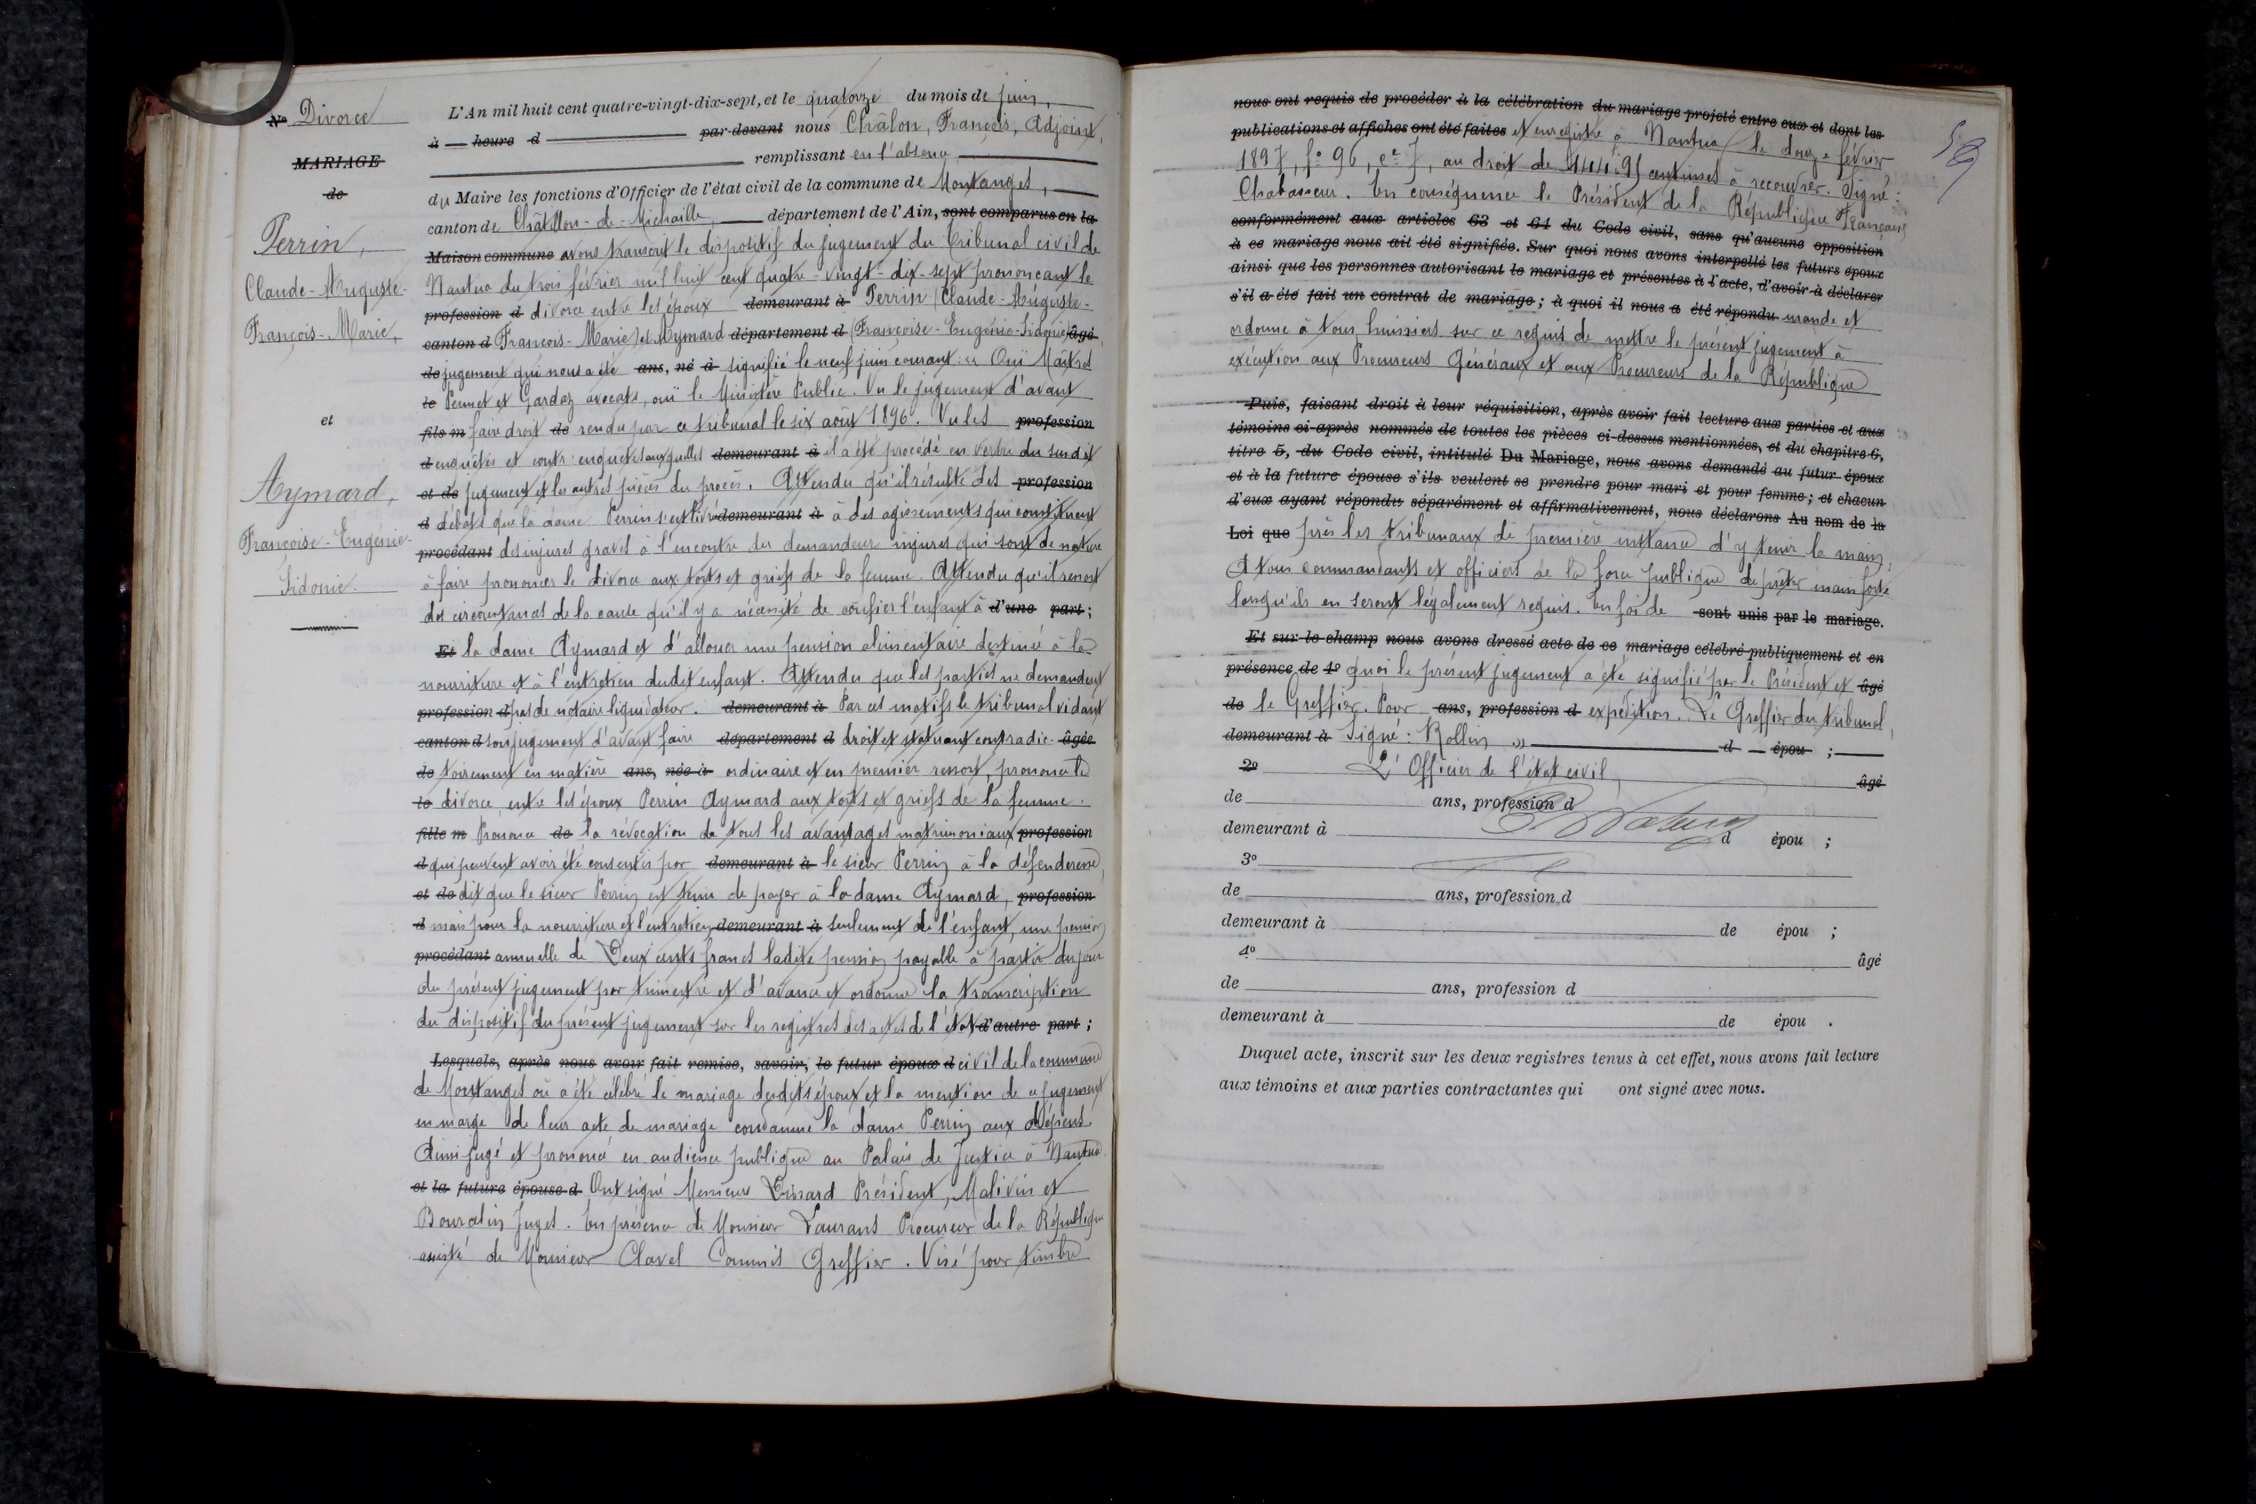 No Divorce
MARIAGE
de
Perrin,
Claude-Auguste-
François-Marie,
et
Aymard,
Françoise-Eugénie-
Sidonie.
L'An mil huit cent quatre-vingt-dix-sept, et le quatorze du mois de juin,
à heure d par-devant nous Châlon, François, Adjoint,
remplissant en l'absence
du Maire les fonctions d'Officier de l'état civil de la commune de Montanges,
canton de Châtillon-de-Michaille, département de l'Ain, sont comparus en la
Maison commune avons transcrit le dispositif du jugement du Tribunal civil de
Nantua du trois février mil huit cent quatre-vingt-dix-sept prononçant le
profession d divorce entre les époux demeurant à Perrin (Claude-Auguste-
canton d François-Marie) et Aymard département d (Françoise-Eugénie-Sidonie) âgé
de jugement qui nous a été ans, né à signifié le neuf juin courant : « Ouï Maîtres
le Pernet et Gardaz avocats, ouï le Ministère Public. Vu le jugement d'avant
fils m faire droit de rendu par ce tribunal le six août 1896. Vu les profession
d enquêtes et contr'enquêtes auxquelles demeurant à il a été procédé en vertu du susdit
et de jugement et les autres pièces du procès. Attendu qu'il résulte des profession
d débats que la dame Perrin s'est livrée demeurant à à des agissements qui constituent
procédant des injures graves à l'encontre du demandeur injures qui sont de nature
à faire prononcer le divorce aux torts et griefs de la femme. Attendu qu'il ressort
des circonstances de la cause qu'il y a nécessité de confier l'enfant à d'une part;
Et la dame Aymard et d'allouer une pension alimentaire destinée à la
nourriture et à l'entretien dudit enfant. Attendu que les parties ne demandent
profession d pas de notaire liquidateur. demeurant à Par ces motifs le tribunal vidant
canton d son jugement d'avant faire département d droit et statuant contradic- âgée
de toirement en matière ans, née à ordinaire et en premier ressort, prononce le
le divorce entre les époux Perrin Aymard aux torts et griefs de la femme.
fille m Prononce de la révocation de tous les avantages matrimoniaux profession
d qui peuvent avoir été consentis par demeurant à le sieur Perrin à la défenderesse,
et de dit que le sieur Perrin est tenu de payer à la dame Aymard, profession
d mais pour la nourriture et l'entretien demeurant à seulement de l'enfant, une pension
procédant annuelle de Deux cents francs ladite pension payable à partir du jour
du présent jugement par trimestre et d'avance et ordonne la transcription
du dispositif du présent jugement sur les registres des actes de l'état d'autre part;
Lesquels, après nous avoir fait remise, savoir, le futur époux d civil de la commune
de Montanges où a été célébré le mariage desdits époux et la mention de ce jugement
en marge de leur acte de mariage condamne la dame Perrin aux dépens.
Ainsi jugé et prononcé en audience publique au Palais de Justice à Nantua.
et la future épouse d Ont signé Messieurs Président, Malivin et
Bourdin juges. En présence de Monsieur Laurans Procureur de la République
assisté de Monsieur Clavel Commis Greffier. Visé pour timbre
59
nous ont requis de procéder à la célébration du mariage projeté entre eux et dont les
publications et affiches ont été faites et enregistré à Nantua le douze février
1897, fo 96, ce 7, au droit de centimes à recouvrer. Signé :
Chabasseur. En conséquence le Président de la République Française
conformément aux articles 63 et 64 du Code civil, sans qu'aucune opposition
à ce mariage nous ait été signifiée. Sur quoi nous avons interpellé les futurs époux
ainsi que les personnes autorisant le mariage et présentes à l'acte, d'avoir à déclarer
s'il a été fait un contrat de mariage; à quoi il nous a été répondu mande et
ordonne à tous huissiers sur ce requis de mettre le présent jugement à
exécution aux Procureurs Généraux et aux Procureurs de la République
Puis, faisant droit à leur réquisition, après avoir fait lecture aux parties et aux
témoins ci-après nommés de toutes les pièces ci-dessus mentionnées, et du chapitre 6,
titre 5, du Code civil, intitulé Du Mariage, nous avons demandé au futur époux
et à la future épouse s'ils veulent se prendre pour mari et pour femme; et chacun
d'eux ayant répondu séparément et affirmativement, nous déclarons Au nom de la
Loi que près les tribunaux de première instance d'y tenir la main,
A tous commandants et officiers de la force publique de prêter main forte
lorsqu'ils en seront légalement requis. En foi de sont unis par le mariage.
Et sur-le-champ nous avons dressé acte de ce mariage célébré publiquement et en
présence de 1o quoi le présent jugement a été signifié par le Président et âgé
de le Greffier. Pour ans, profession d expédition. Le Greffier du tribunal,
demeurant à Signé : Rollin » d épou ;
2o L'Officier de l'état civil, âgé
de ans, profession d
demeurant à d épou ;
3o
de ans, profession d
demeurant à de épou ;
4o âgé
de ans, profession d
demeurant à de épou .
Duquel acte, inscrit sur les deux registres tenus à cet effet, nous avons fait lecture
aux témoins et aux parties contractantes qui ont signé avec nous.